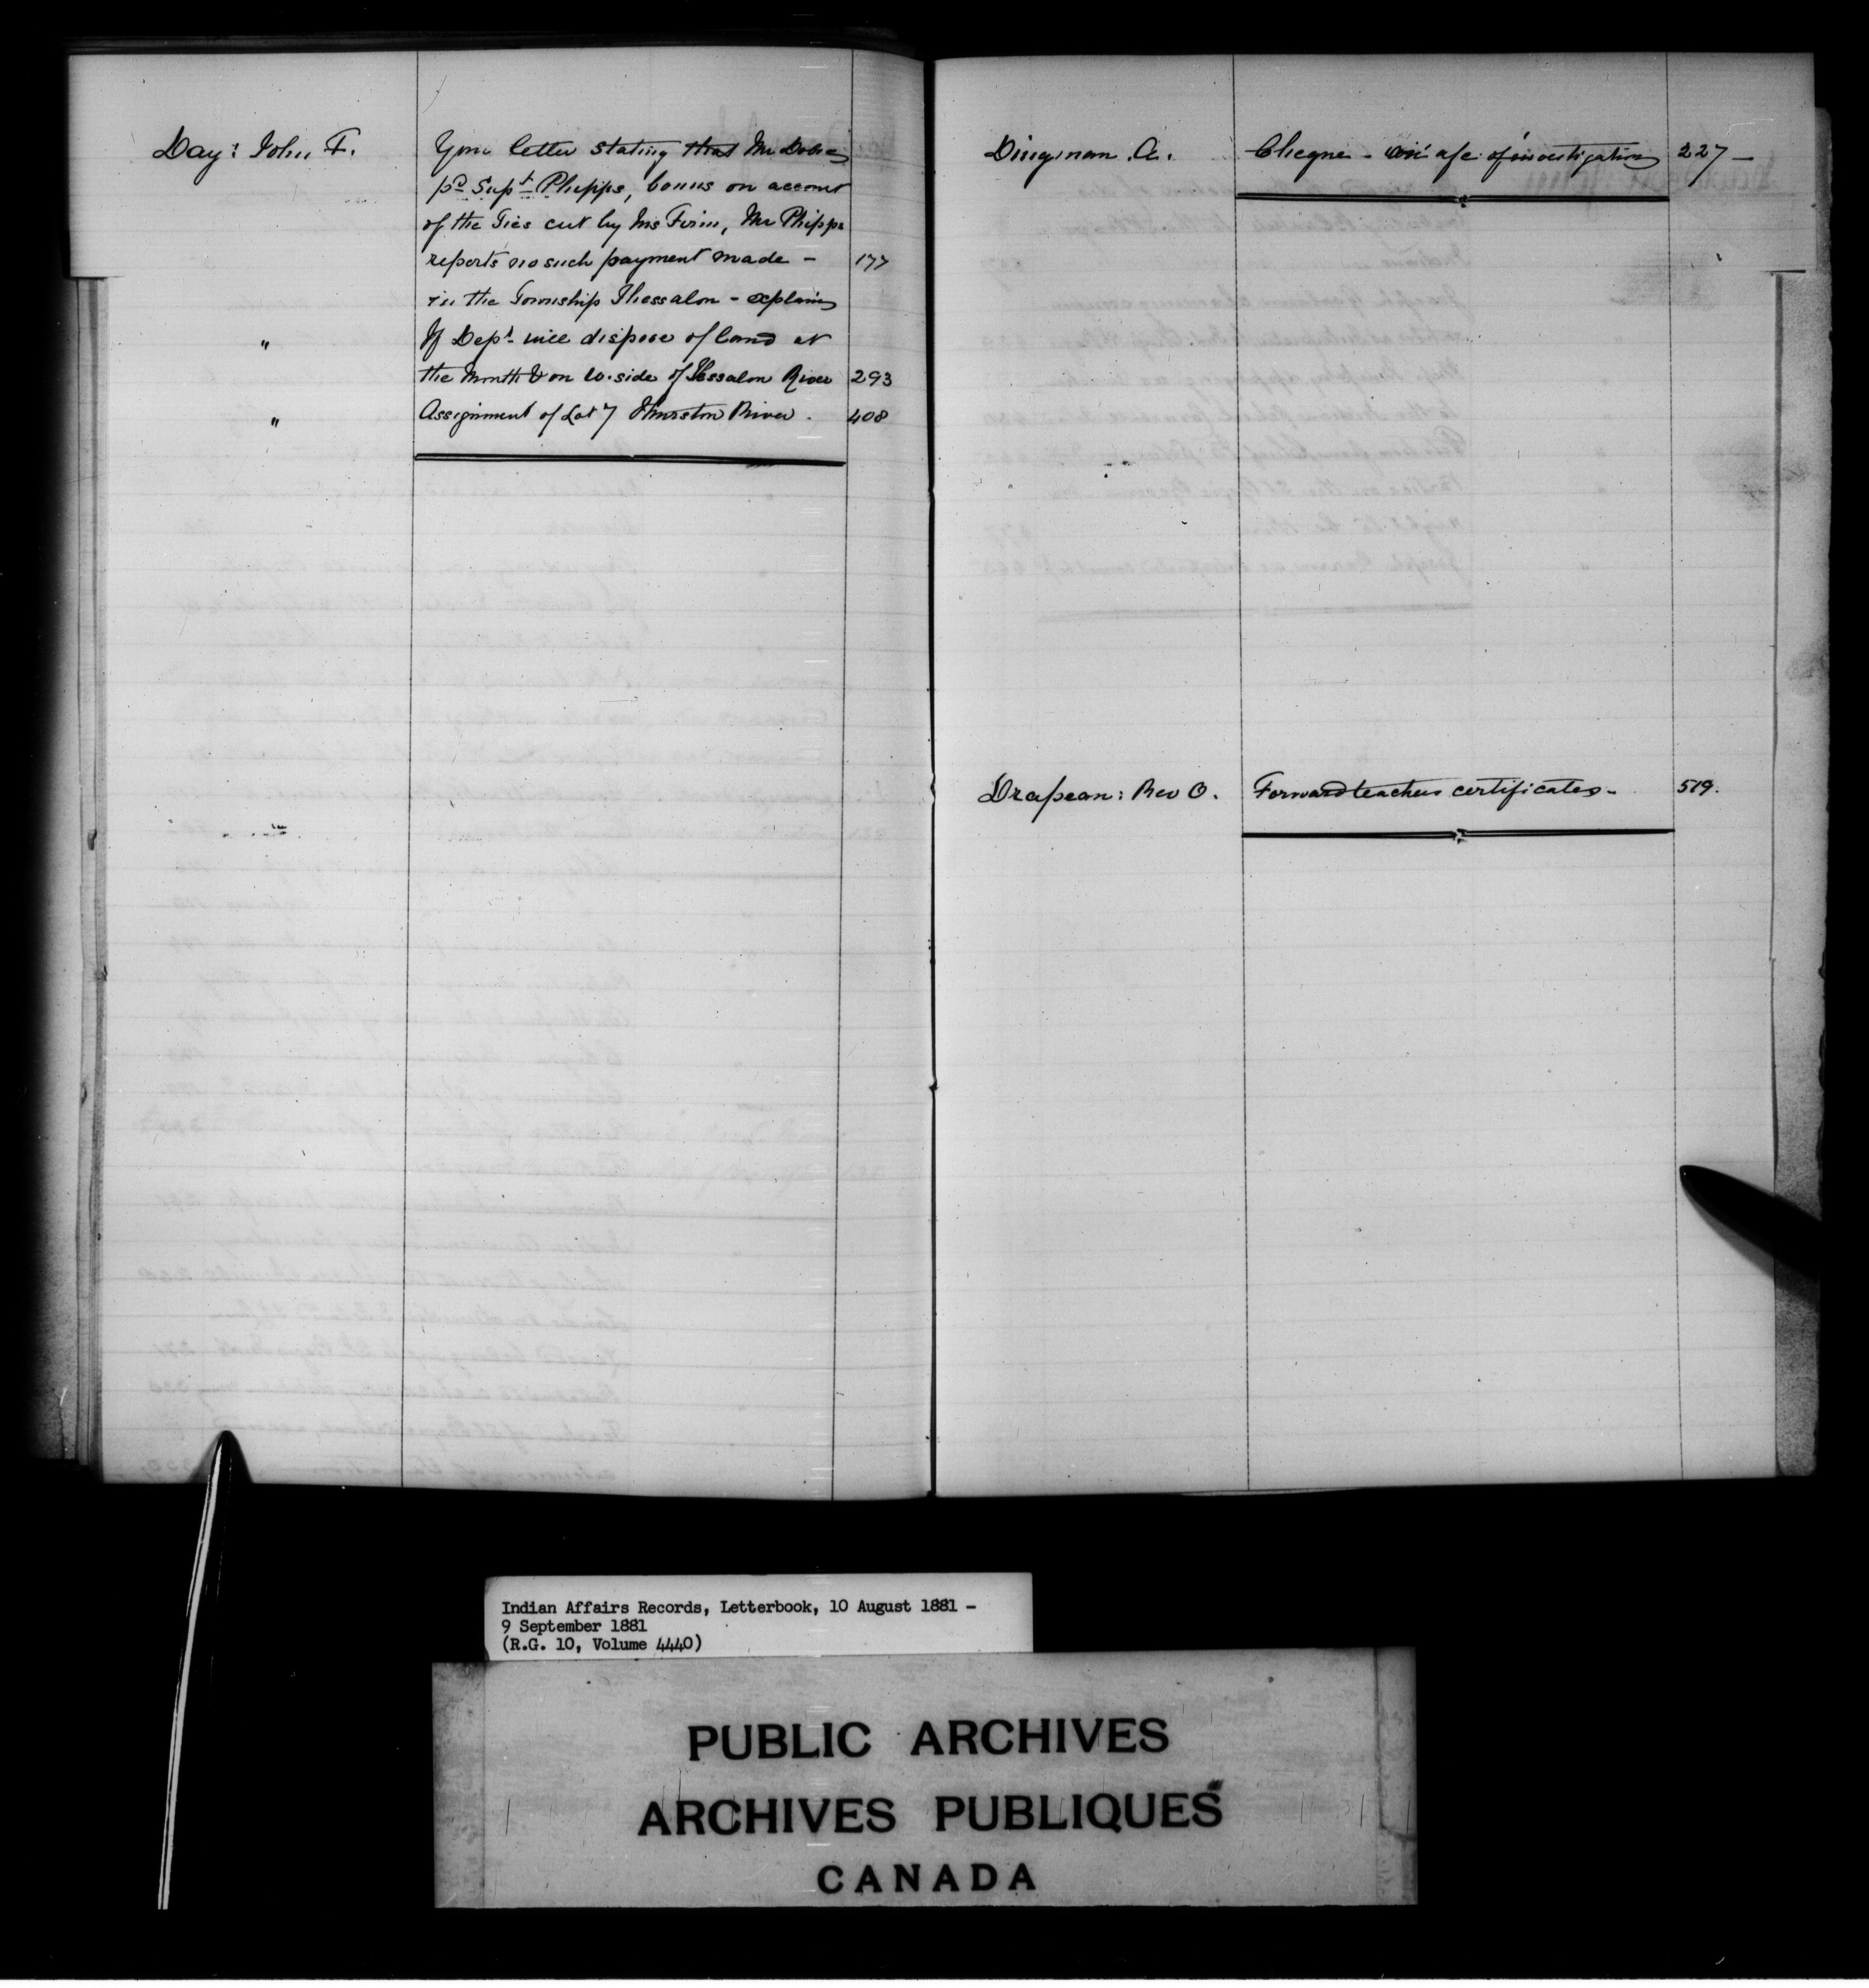 Day: John F.
Your letter stating that Mr Dobie
pd Supt Phipps, bonus on account
of the Ties cut by his Firm, Mr Phipps
reports no such payment made - 177
in the Township Thessalon - explain
" If Dept. will dispose of land at
the Mouth & on W. side of Thessalon River 293
" Assignment of Lot 7 Thurston River. 408
Dingman. A. Cheque - a/c of investigation 227 -
Drapeau: Rev O. Forward teachers certificates - 519.
Indian Affairs Records, Letterbook, 10 August 1881 -
9 September 1881
(R.G. 10, Volume 4440)
PUBLIC ARCHIVES
ARCHIVES PUBLIQUES
CANADA